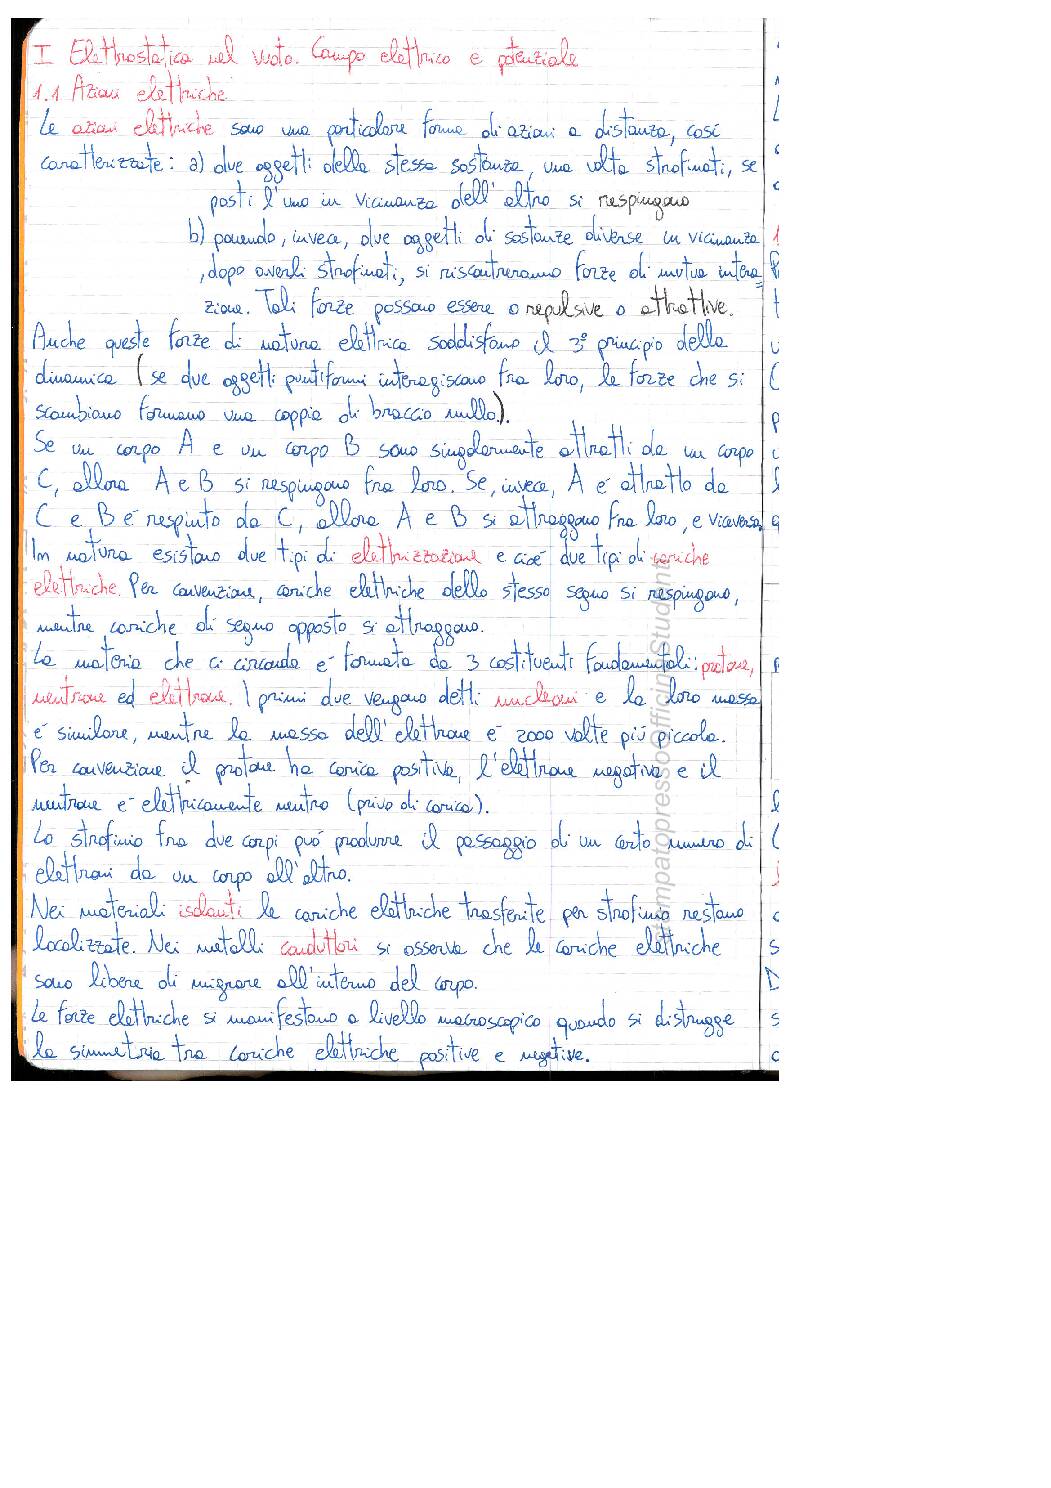 I Elettrostatica nel vuoto. Campo elettrico e potenziale
1.1 Azioni elettriche
Le azioni elettriche sono una particolare forma di azioni a distanza, così
caratterizzate: a) due oggetti della stessa sostanza, una volta strofinati, se
posti l'uno in vicinanza dell'altro si respingono
b) ponendo, invece, due oggetti di sostanze diverse in vicinanza
, dopo averli strofinati, si riscontreranno forze di mutua intera=
zione. Tali forze possono essere o repulsive o attrattive.
Anche queste forze di natura elettrica soddisfano il 3° principio della
dinamica (se due oggetti puntiformi interagiscono fra loro, le forze che si
scambiano formano una coppia di braccio nullo).
Se un corpo A e un corpo B sono singolarmente attratti da un corpo
C, allora A e B si respingono fra loro. Se, invece, A é attratto da
C e B é respinto da C, allora A e B si attraggono fra loro, e viceversa.
In natura esistono due tipi di elettrizzazione e cioé due tipi di cariche
elettriche. Per convenzione, cariche elettriche dello stesso segno si respingono,
mentre cariche di segno opposto si attraggono.
La materia che ci circonda é formata da 3 costituenti fondamentali: protone,
neutrone ed elettrone. I primi due vengono detti nucleoni e la loro massa
é similare, mentre la massa dell'elettrone é 2000 volte più piccola.
Per convenzione il protone ha carica positiva, l'elettrone negativa e il
neutrone é elettricamente neutro (privo di carica).
Lo strofinio fra due corpi può produrre il passaggio di un certo numero di
elettroni da un corpo all'altro.
Nei materiali isolanti le cariche elettriche trasferite per strofinio restano
localizzate. Nei metalli conduttori si osserva che le cariche elettriche
sono libere di migrare all'interno del corpo.
Le forze elettriche si manifestano a livello macroscopico quando si distrugge
la simmetria tra cariche elettriche positive e negative.
StampatopressoOfficinaStudenti